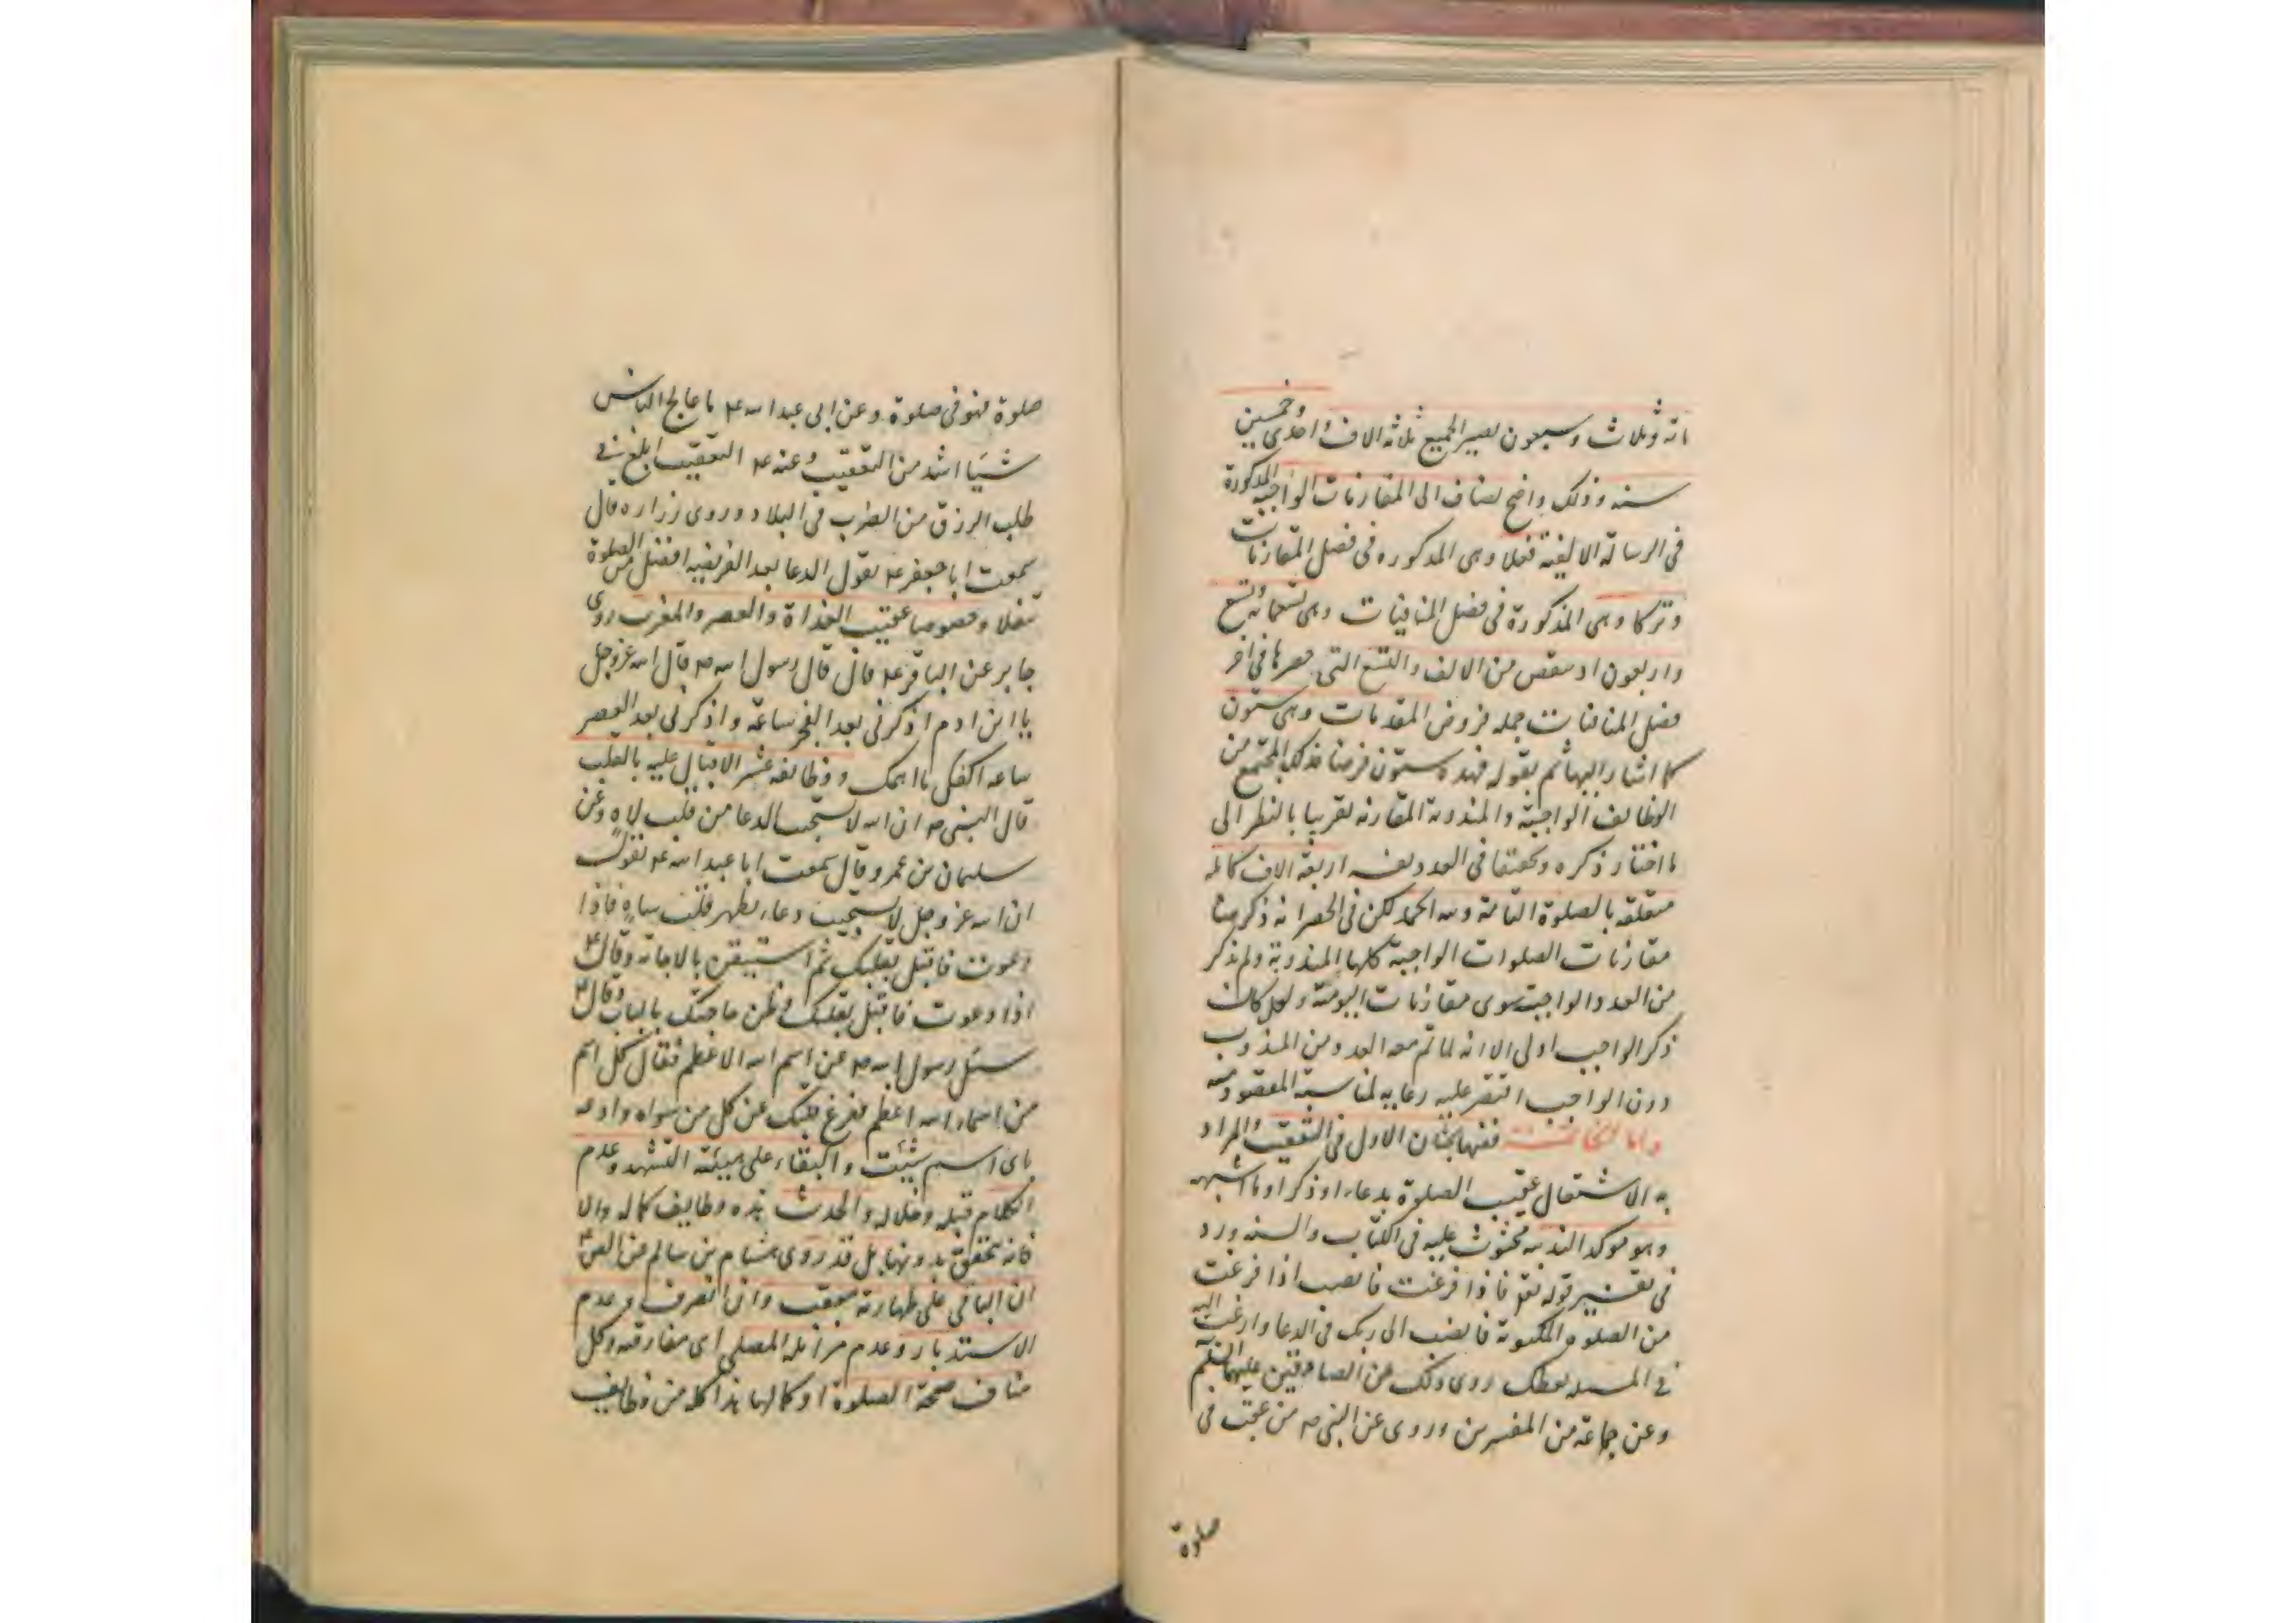 مائة وثلاث وسبعون يصير الجميع ثلاثة الاف واحدى وخمسين
سنه وذلك واضح يضاف الى المقارنات الواجبة المذكورة
فى الرسالة الالفية فعلا وهى المذكوره فى فصل المقارنات
وتركا وهى المذكورة فى فصل المنافيات وهى تسعمائة وتسع
واربعون اذ ينقص من الالف والتسع التى حصرها فى اخر
فصل المنافيات جمله فروض المقدمات وهى ستون
كما اشار اليها ثم بقوله فهذه ستون فرضا فذلك المجتمع من
الوظايف الواجبة والمندوبة المقارنه تقريبا بالنظر الى
ما اختار ذكره وتحقيقا فى العدد يفى اربعة الاف كامله
متعلقه بالصلوة التامة ولله الحمد لكن فى الحصر انه ذكر هنا
مقارنات الصلوات الواجبة كلها المندوبة ولم يذكر
من العدد الواجبة سوى مقارنات اليومية ولعل كان
ذكر الواجب اولى الا انه لما تم معه العدد من المندوب
دون الواجب اقتصر عليه رعاية لمناسبة المقصود منه
واما الخاتمة ففيها بحثان الاول فى التعقيب والمراد
به الاشتغال عقيب الصلوة بدعاء او ذكر او ما اشبهه
وهو موكد الندبيه محثوث عليه فى الكتاب والسنه ورد
فى تفسير قوله تعلى فاذا فرغت فانصب اذا فرغت
من الصلوه المكتوبة فانصب الى ربك فى الدعا وارغب اليه
فى المسئله يعطك روى ذلك عن الصادقين عليهما السلم
وعن جماعة من المفسرين وروى عن النبى ص من عقب فى
صلوة
صلوة فهو فى صلوة وعن ابى عبد الله ع ما عالج الناس
شيئا اشد من التعقيب وعنه ع التعقيب ابلغ فى
طلب الرزق من الضرب فى البلاد وروى زراره قال
سمعت ابا جعفر ع يقول الدعا بعد الفريضه افضل من الصلوة
تنفلا وخصوصا عقيب الغداة والعصر والمغرب روى
جابر عن الباقر ع قال قال رسول الله ص قال الله عز وجل
يا ابن ادم اذكرنى بعد الفجر ساعة واذكرنى بعد العصر
ساعه اكفك ما اهمك ووظائفه عشر الاقبال عليه بالقلب
قال النبى ص ان الله لا يستجيب الدعا من قلب لاه وعن
سليمان بن عمرو قال سمعت ابا عبد الله ع يقول
ان الله عز وجل لا يستجيب دعاء بظهر قلب ساه فاذا
دعوت فاقبل بقلبك ثم استيقن بالاجابة وقال ع
اذا دعوت فاقبل بقلبك وظن حاجتك بالباب وقال ع
سئل رسول الله ص عن اسم الله الاعظم فقال كل اسم
من اسماء الله اعظم ففرغ قلبك عن كل من سواه وادعه
باى اسم شئت والبقاء على هيئة التشهد وعدم
الكلام قبله وخلاله والحدث هذه وظايف كماله والا
فانه يتحقق بدونها بل قد روى هشام بن سالم عن الص ع
ان الباقى على طهارته معقب وان انصرف وعدم
الاستدبار وعدم مزايلة المصلى اى مفارقته وكل
مناف صحة الصلوة او كمالها هذا كله من وظايف